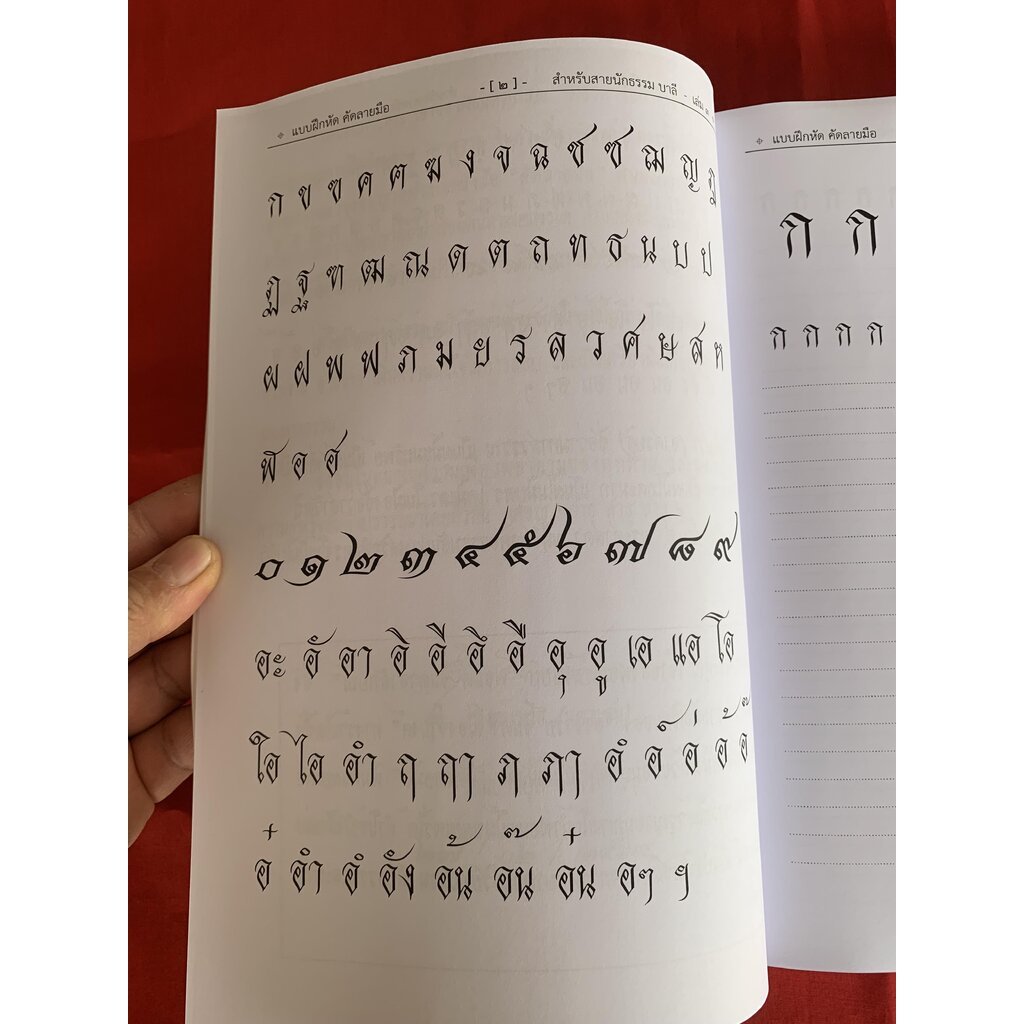 ๏ แบบฝึกหัด คัดลายมือ - [ ๒ ] - สำหรับสายนักธรรม บาลี - เล่ม ๑
ก ข ฃ ค ฅ ฆ ง จ ฉ ช ซ ฌ ญ ฎ
ฏ ฐ ฑ ฒ ณ ด ต ถ ท ธ น บ ป
ผ ฝ พ ฟ ภ ม ย ร ล ว ศ ษ ส ห
ฬ อ ฮ
๐ ๑ ๒ ๓ ๔ ๕ ๖ ๗ ๘ ๙
อะ อั อา อิ อี อึ อื อุ อู เอ แอ โอ
ใอ ไอ อำ ฤ ฤๅ ฦ ฦๅ อํ อ์ อ่ อ้ อ๊
อ๋ อำ อํ อัง อ้น อ๊น อ๋น อๆ ฯ
๏ แบบฝึกหัด คัดลายมือ
ก ก
ก ก ก ก